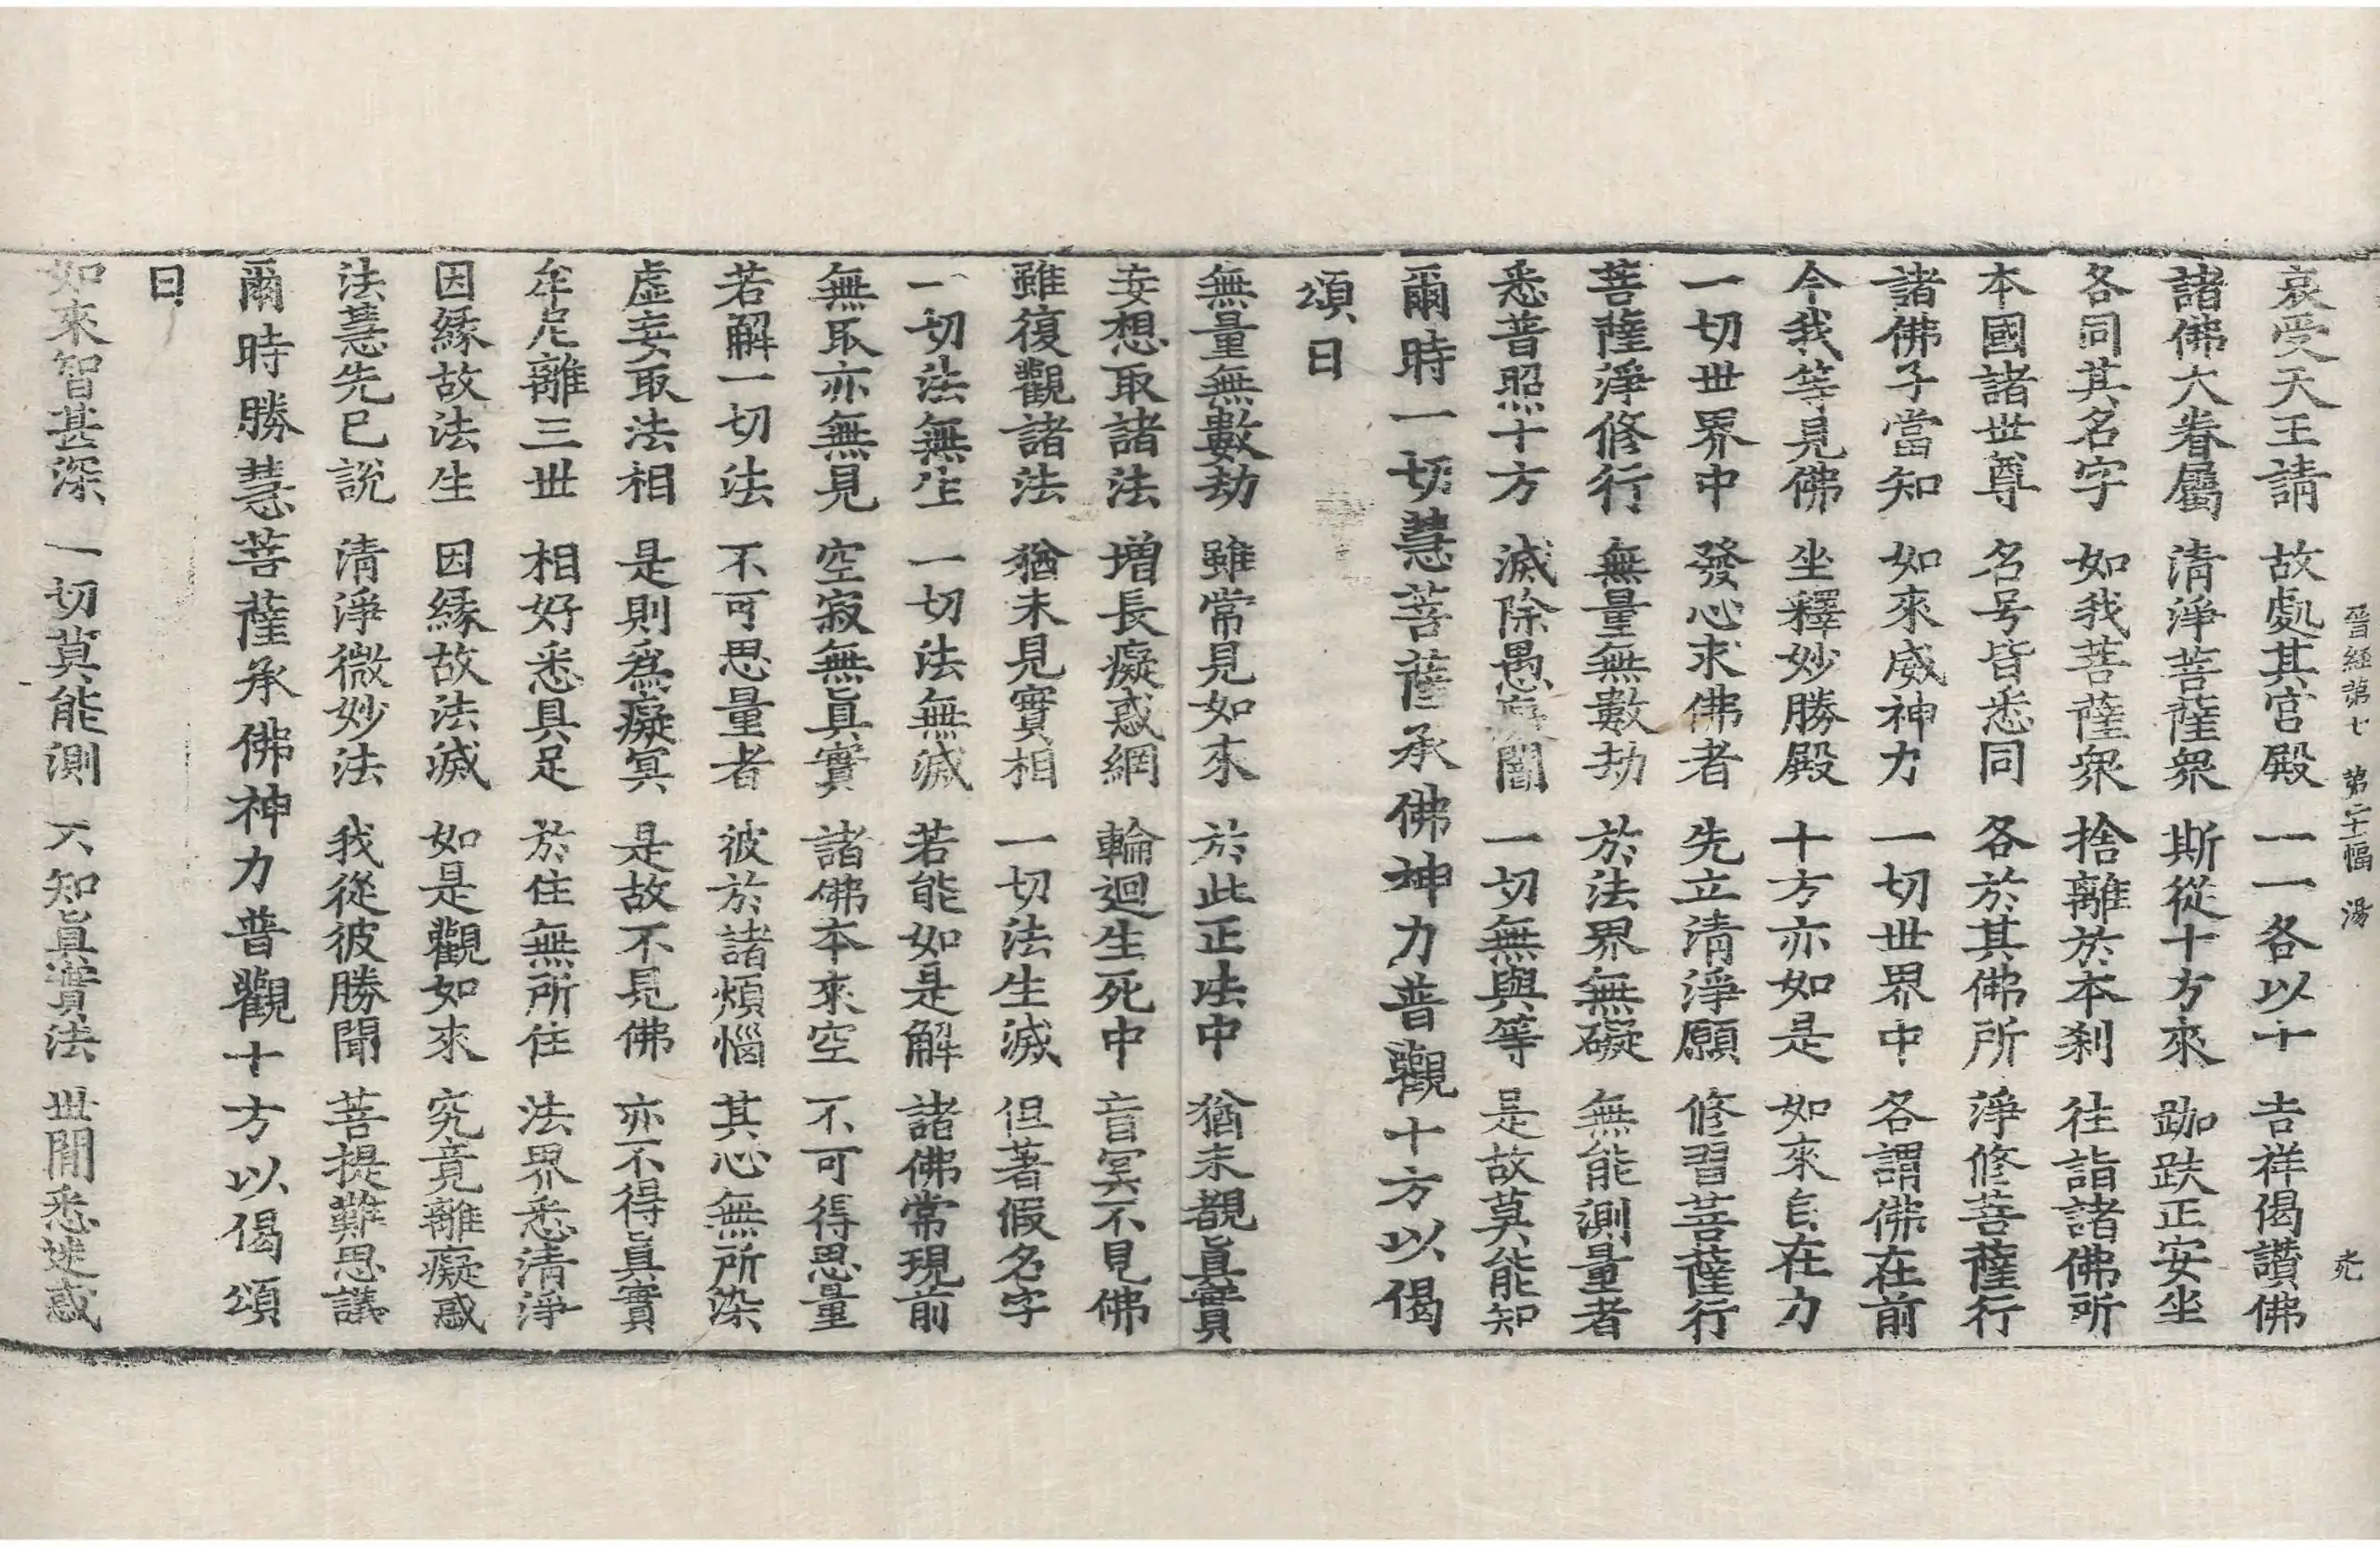 晉經第七 第二十幅 湯 光
哀受天王請 故處其宮殿 一一各以十 吉祥偈讃佛
諸佛大眷屬 清淨菩薩衆 斯從十方來 跏趺正安坐
各同其名字 如我菩薩衆 捨離於本刹 往詣諸佛所
本國諸世尊 名号皆悉同 各於其佛所 淨修菩薩行
諸佛子當知 如來威神力 一切世界中 各謂佛在前
今我等見佛 坐釋妙勝殿 十方亦如是 如來自在力
一切世界中 發心求佛者 先立清淨願 修習菩薩行
菩薩淨修行 無量無數劫 於法界無礙 無能測量者
悉普照十方 滅除愚癡闇 一切無與等 是故莫能知
爾時一切慧菩薩承佛神力普觀十方以偈
頌曰
無量無數劫 雖常見如來 於此正法中 猶未覩眞實
妄想取諸法 増長癡惑網 輪迴生死中 盲冥不見佛
雖復觀諸法 猶未見實相 一切法生滅 但著假名字
一切法無生 一切法無滅 若能如是解 諸佛常現前
無取亦無見 空寂無眞實 諸佛本來空 不可得思量
若解一切法 不可思量者 彼於諸煩惱 其心無所染
虛妄取法相 是則爲癡冥 是故不見佛 亦不得眞實
牟尼離三世 相好悉具足 於住無所住 法界悉清淨
因縁故法生 因縁故法滅 如是觀如來 究竟離癡惑
法慧先已說 清淨微妙法 我從彼勝聞 菩提難思議
爾時勝慧菩薩承佛神力普觀十方以偈頌
曰
如來智甚深 一切莫能測 不知眞實法 世間悉迷惑